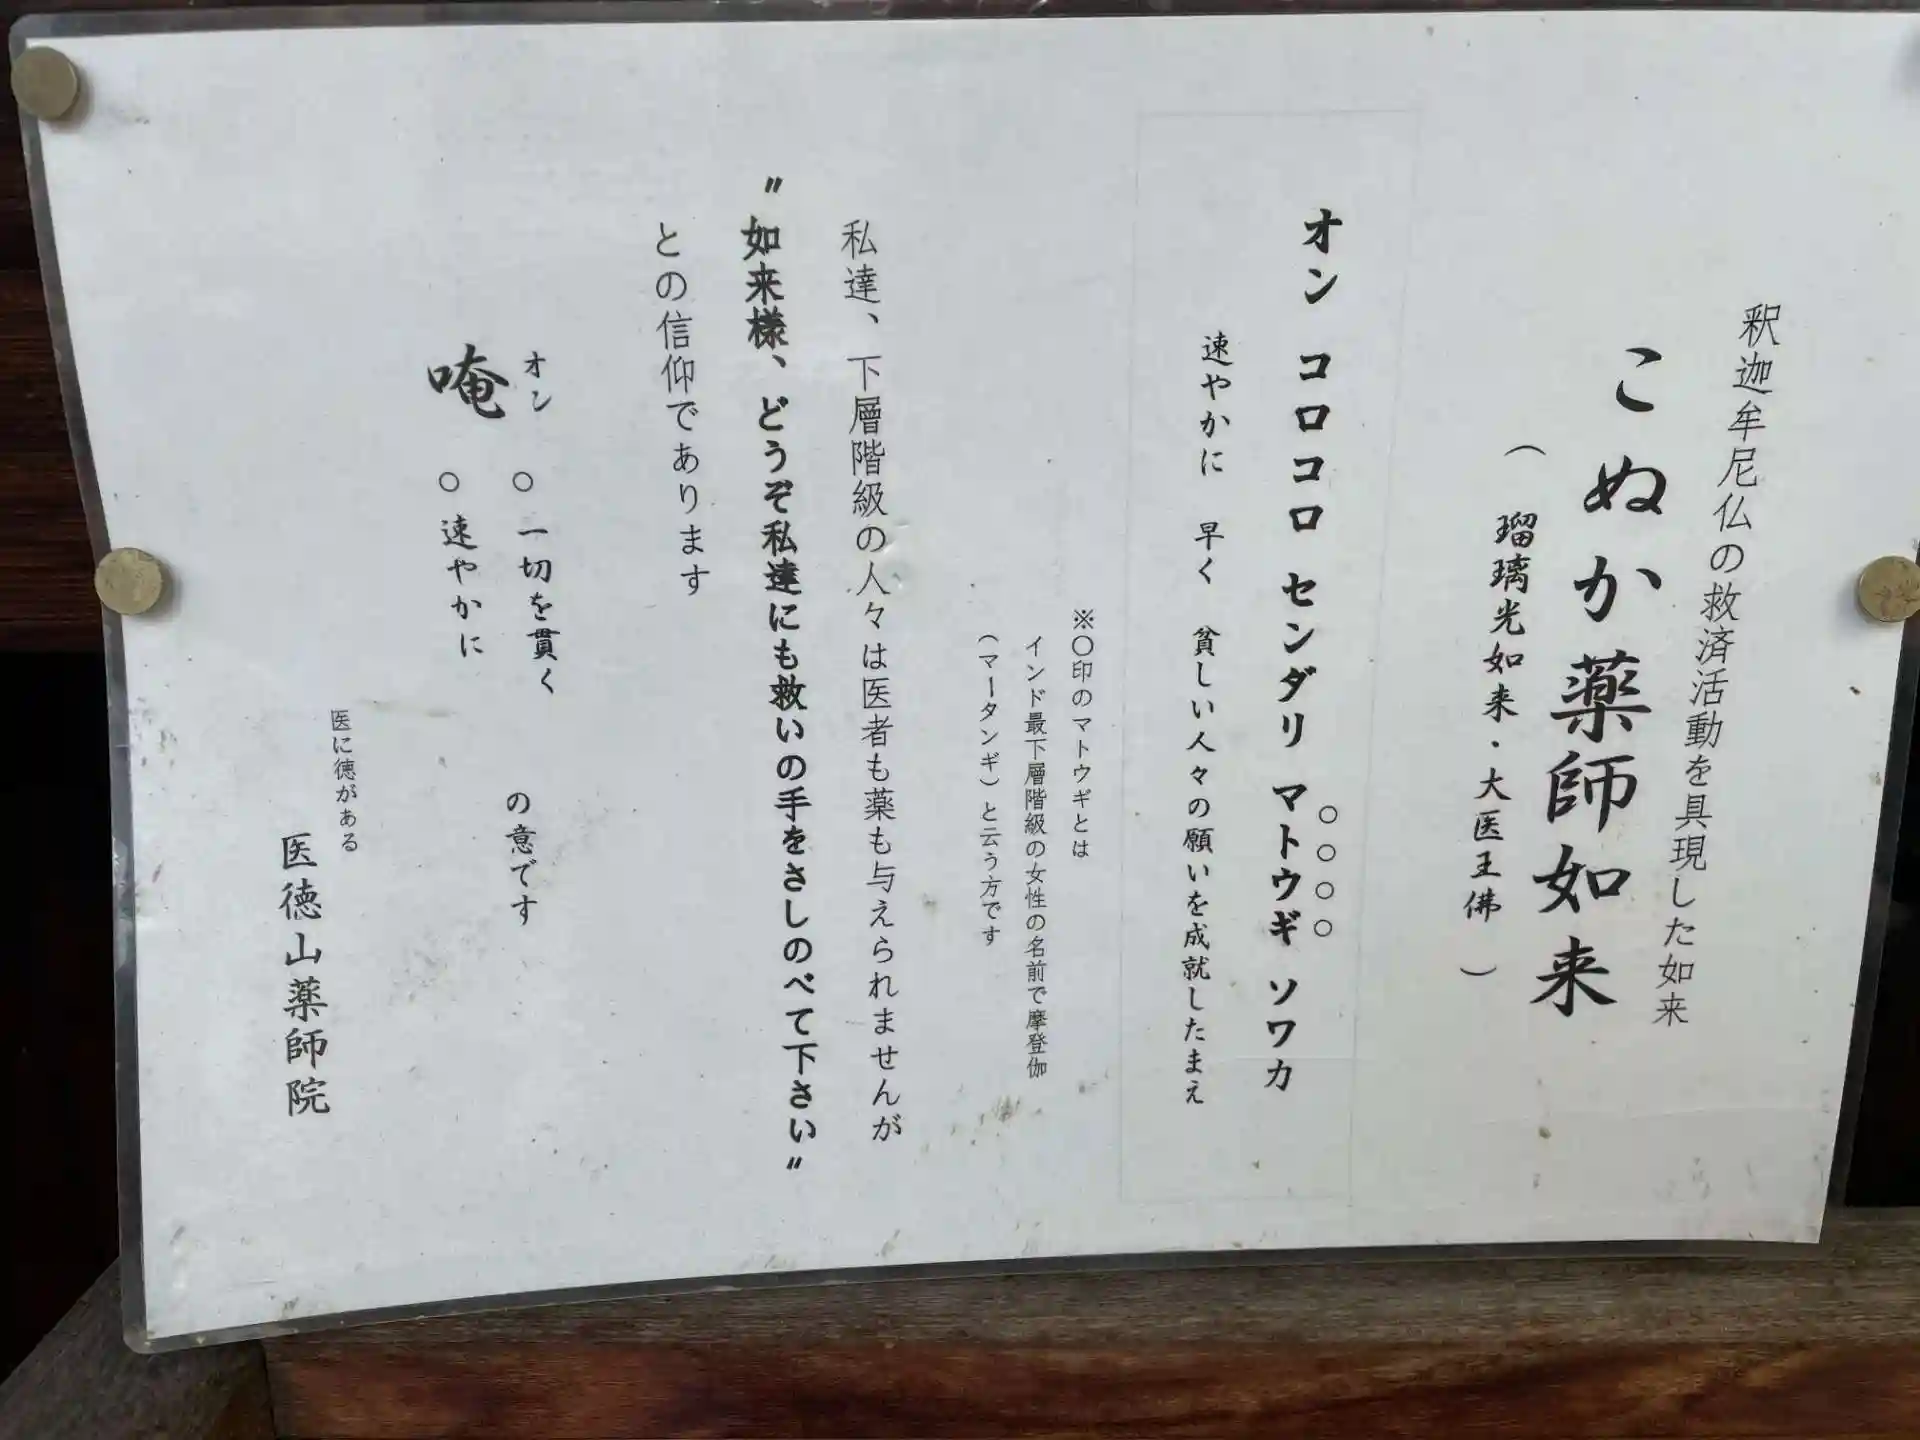 釈迦牟尼仏の救済活動を具現した如来
こぬか薬師如来
（　瑠璃光如来・大医王佛　）
○○○○
オン　コロコロ　センダリ　マトウギ　ソワカ
速やかに　早く　貧しい人々の願いを成就したまえ
※○印のマトウギとは
インド最下層階級の女性の名前で摩登伽
（マータンギ）と云う方です
私達、下層階級の人々は医者も薬も与えられませんが
〃如来様、どうぞ私達にも救いの手をさしのべて下さい〃
との信仰であります
オン
唵
○一切を貫く
○速やかに
の意です
医に徳がある
医徳山薬師院